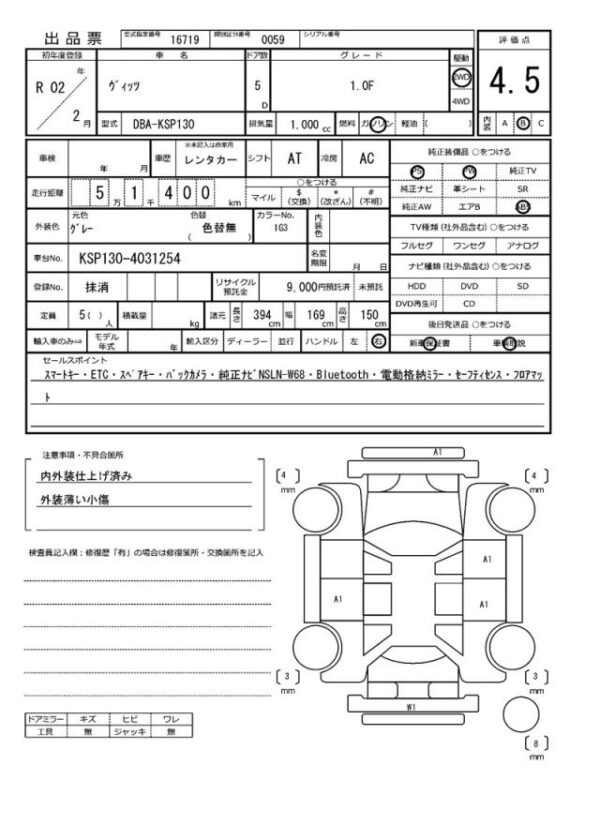 出品票 型式指定番号 16719 類別区分番号 0059 シリアル番号
評価点
4.5
内装 A B C
初年度登録 車名 ドア数 グレード 駆動
R 02 年 2 月 ヴィッツ 5 D 1.0F 2WD 4WD
型式 DBA-KSP130 排気量 1,000 cc 燃料 ガソリン 軽油 ( )
車検 年 月 車歴 ※未記入は自家用 レンタカー シフト AT 冷房 AC
走行距離 5 万 1 千 400 km ○をつける マイル $ (交換) * (改ざん) # (不明)
外装色 元色 グレー 色替 ( 色替無 ) カラーNo. 1G3 内装色
車台No. KSP130-4031254 名変期限 月 日
登録No. 抹消 リサイクル預託金 9,000円預託済 未預託
定員 5( )人 積載量 kg 諸元 長さ 394 cm 幅 169 cm 高さ 150 cm
輸入車のみ⇒ モデル年式 年 輸入区分 ディーラー 並行 ハンドル 左 右
純正装備品 ○をつける
PS PW 純正TV
純正ナビ 革シート SR
純正AW エアB ABS
TV種類(社外品含む)○をつける
フルセグ ワンセグ アナログ
ナビ種類(社外品含む)○をつける
HDD DVD SD
DVD再生可 CD
後日発送品 ○をつける
新車保証書 車輌取説
セールスポイント
スマートキー・ETC・スペアキー・バックカメラ・純正ナビNSLN-W68・Bluetooth・電動格納ミラー・セーフティセンス・フロアマッ
ト
注意事項・不具合箇所
内外装仕上げ済み
外装薄い小傷
検査員記入欄:修復歴「有」の場合は修復箇所・交換箇所を記入
ドアミラー キズ ヒビ ワレ
工具 無 ジャッキ 無
A1
4 mm
4 mm
A1
A1 A1
3 mm
3 mm
W1
8 mm